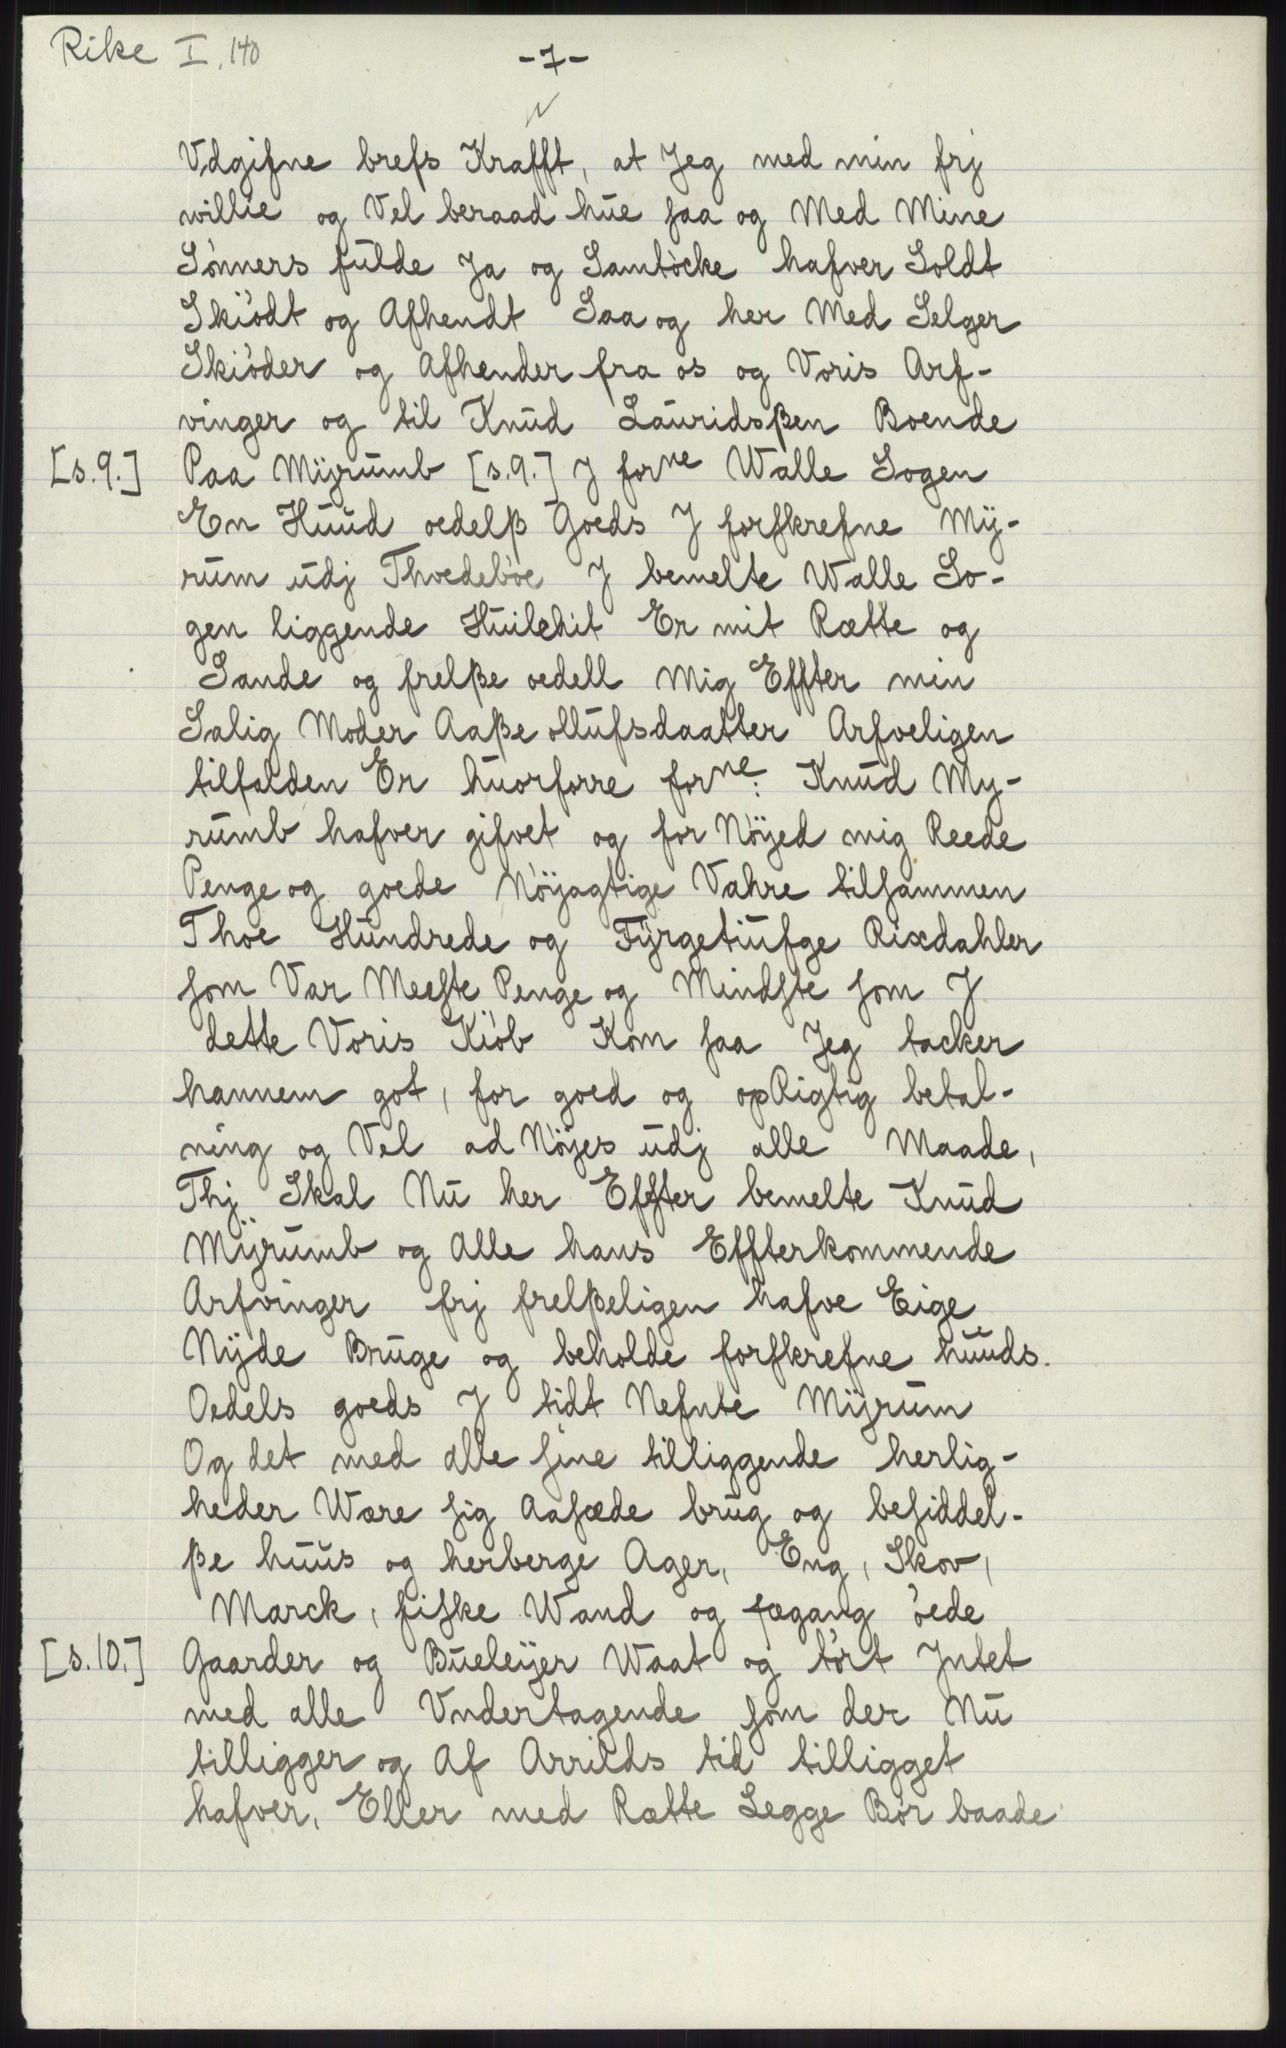 Rike I, 140
-7-
Vdgifne brefs Krafft, at Jeg med min frj
willie og Vel beraad hue saa og Med Mine
Sönners fulde Ja og Samtöcke hafver Soldt
Skiödt og Afhendt Saa og her Med Selger
Skiöder og Afhender fra os og Voris Arf-
vinger og til Knud Lauridsßen Boende
[s.9.] Paa Mÿrumb [s.9.] J forne Walle Sogen
En Huud oedelß Goeds J forskrefne Mÿ-
rum udj Thvedeböe J bemelte Walle So-
gen liggende Huilchit Er mit Rætte og
Sande og frelße oedell Mig Effter min
Salig Moder Aaße ollufsdaatter Arfveligen
tilfalden Er huorforre forne: Knud My-
rumb hafver gifvet og for Nöÿed mig Reede
Penge og goede Nöÿagtige Vahre tilsammen
Thoe Hundrede og Fÿrgetiufge Rixdahler
som Var Meeste Penge og Mindste som J
dette Voris Kiöb Kom saa Jeg tacker
hannem got, for goed og opRigtig betal-
ning og Vel ad Nöÿes udj alle Maade,
Thj Skal Nu her Effter bemelte Knud
Mÿrumb og Alle hans Effterkommende
Arfvinger frj frelßeligen hafve Eige
Nÿde Bruge og beholde forskrefne huuds.
Oedels goeds J tidt Nefnte Mÿrum
Og det med alle sine tilliggende herlig-
heder Være sig Aasæde brug og besiddel-
ße huus og herberge Ager, Eng, Skov,
Marck, fiske Wand og fægang öede
[s.10.] Gaarder og Bueleÿer Waat og tört Jntet
med alle Vndertagende som der Nu
tilligger og Af Arrilds tid tilligget
hafver, Eller med Rætte Legge Bör baade